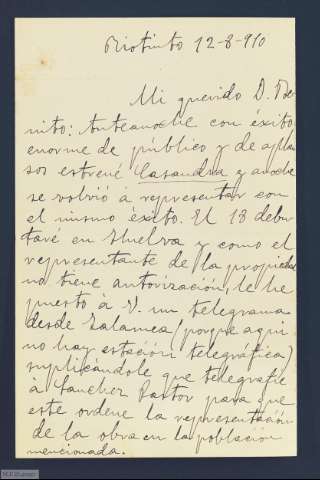 Riotinto 12-8-910
Mi querido D. Be-
nito: Anteanoche con éxito
enorme de público y de aplau
sos estrené Casandra y anoche
se volvió á representar con
el mismo éxito. El 13 debu-
taré en Huelva y como el
representante de la propiedad
no tiene autorización, le he
puesto á V. un telegrama
desde Zalamea (porque aqui
no hay estación telegráfica)
suplicándole que telegrafie
á Sanchez Pastor para que
este ordene la representación
de la obra en la población
mencionada.